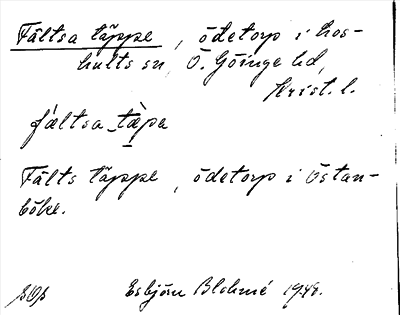 Fältsa täppe, ödetorp i Los-
hults sn, Ö. Göinge hd,
Krist. l.
fæltsa tæpa
Fälts täppe, ödetorp i Östan-
böke.
Esbjörn Blohmé 1948.